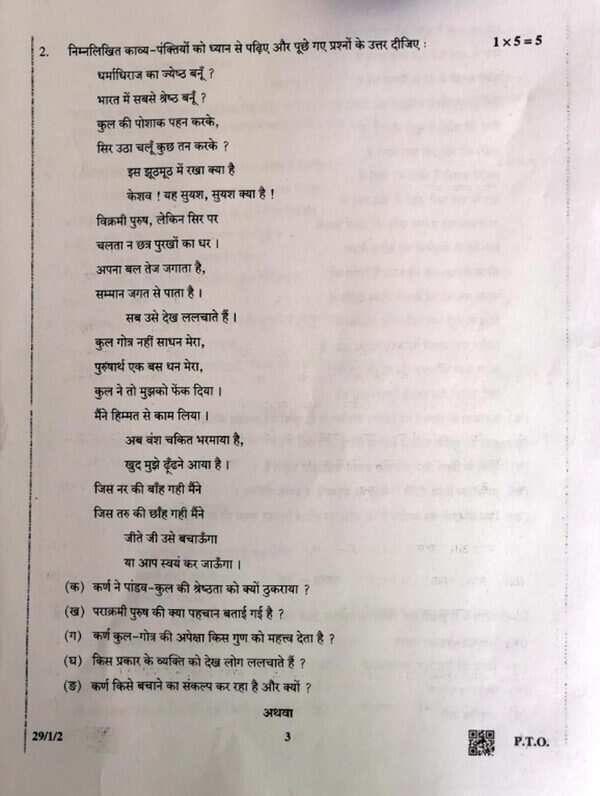 2. निम्नलिखित काव्य-पंक्तियों को ध्यान से पढ़िए और पूछे गए प्रश्नों के उत्तर दीजिए : 1 × 5 = 5
धर्माधिराज का ज्येष्ठ बनूँ ?
भारत में सबसे श्रेष्ठ बनूँ ?
कुल की पोशाक पहन करके,
सिर उठा चलूँ कुछ तन करके ?
इस झूठमूठ में रखा क्या है
केशव ! यह सुयश, सुयश क्या है !
विक्रमी पुरुष, लेकिन सिर पर
चलता न छत्र पुरखों का धर ।
अपना बल तेज जगाता है,
सम्मान जगत से पाता है ।
सब उसे देख ललचाते हैं ।
कुल गोत्र नहीं साधन मेरा,
पुरुषार्थ एक बस धन मेरा,
कुल ने तो मुझको फेंक दिया ।
मैंने हिम्मत से काम लिया ।
अब वंश चकित भरमाया है,
खुद मुझे ढूँढने आया है ।
जिस नर की बाँह गही मैंने
जिस तरु की छाँह गही मैंने
जीते जी उसे बचाऊँगा
या आप स्वयं कर जाऊँगा ।
(क) कर्ण ने पांडव-कुल की श्रेष्ठता को क्यों ठुकराया ?
(ख) पराक्रमी पुरुष की क्या पहचान बताई गई है ?
(ग) कर्ण कुल-गोत्र की अपेक्षा किस गुण को महत्त्व देता है ?
(घ) किस प्रकार के व्यक्ति को देख लोग ललचाते हैं ?
(ङ) कर्ण किसे बचाने का संकल्प कर रहा है और क्यों ?
अथवा
29/1/2 3 P.T.O.